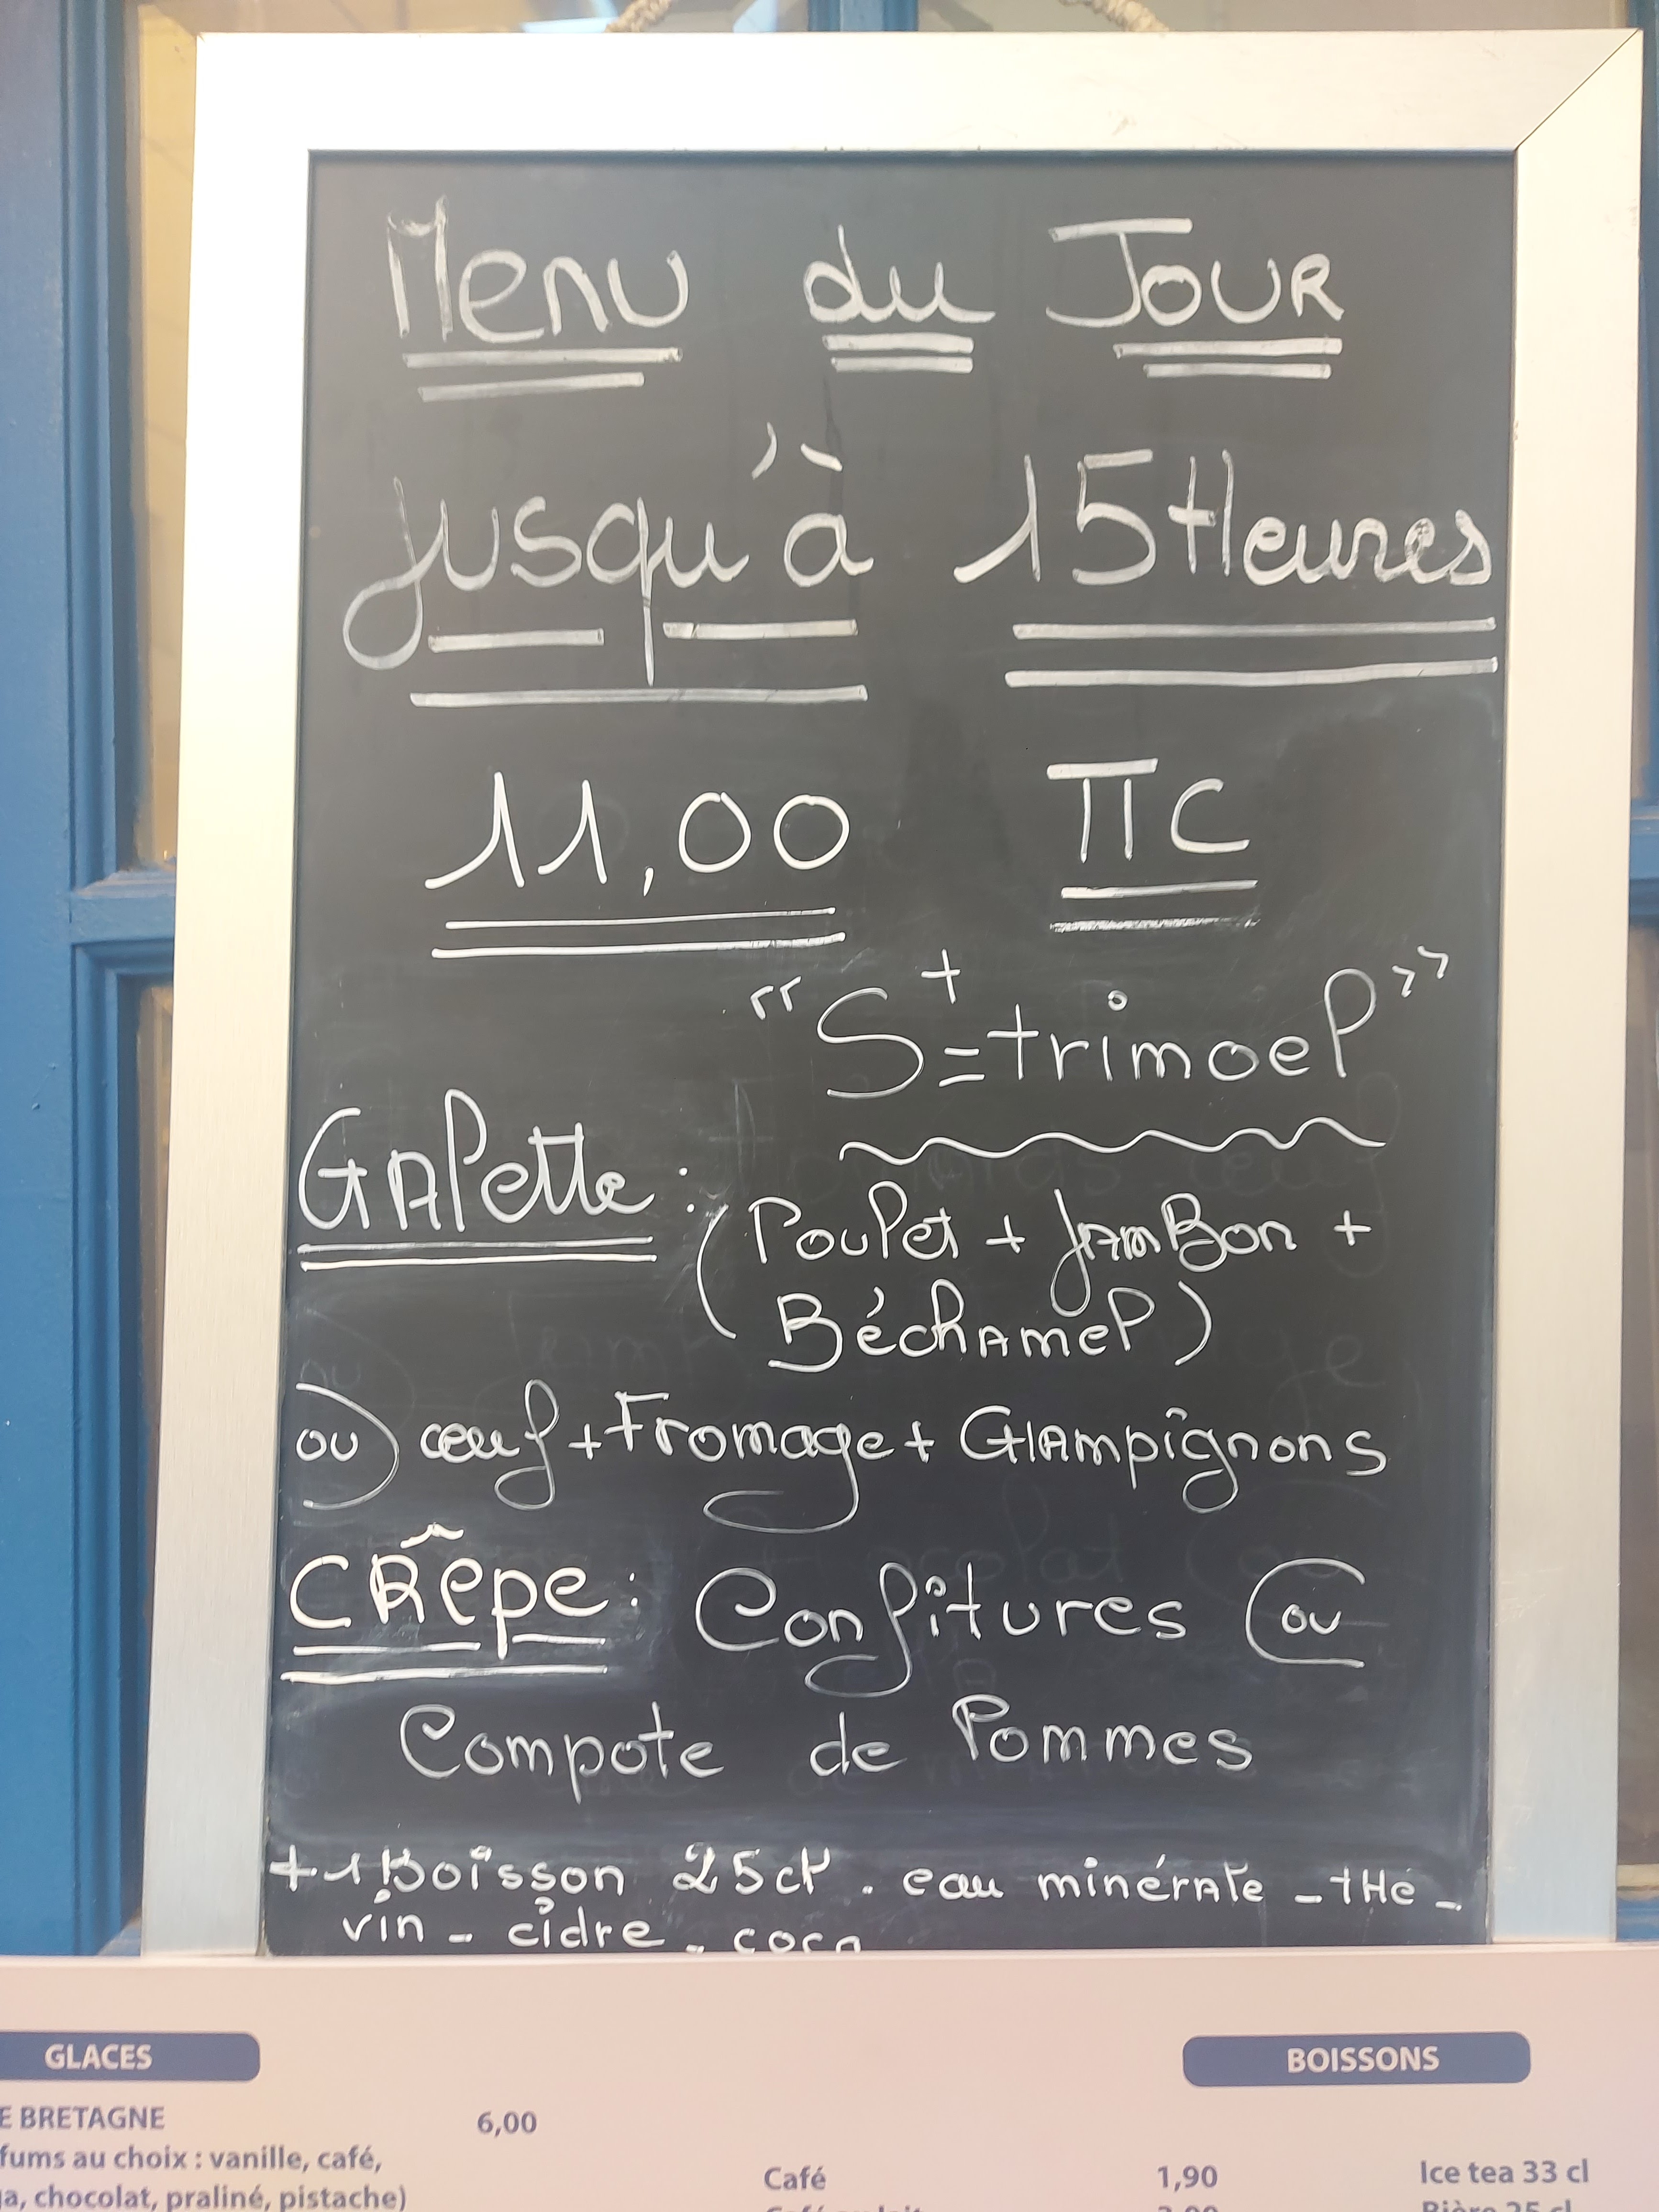 Menu du JOUR
jusqu'à 15 Heures
11,00 TTC
"St=trimoel"
GAlette :
(Poulet + JAmBon +
BéchAmel)
ou) œuf + Fromage + CHAmpignons
CRêpe : Confitures (ou
Compote de Pommes
+ 1 Boisson 25cl . eau minérAle - tHé -
vin - cidre - coca
GLACES
BOISSONS
E BRETAGNE 6,00
fums au choix : vanille, café,
a, chocolat, praliné, pistache)
Café 1,90 Ice tea 33 cl
Bière 25 cl